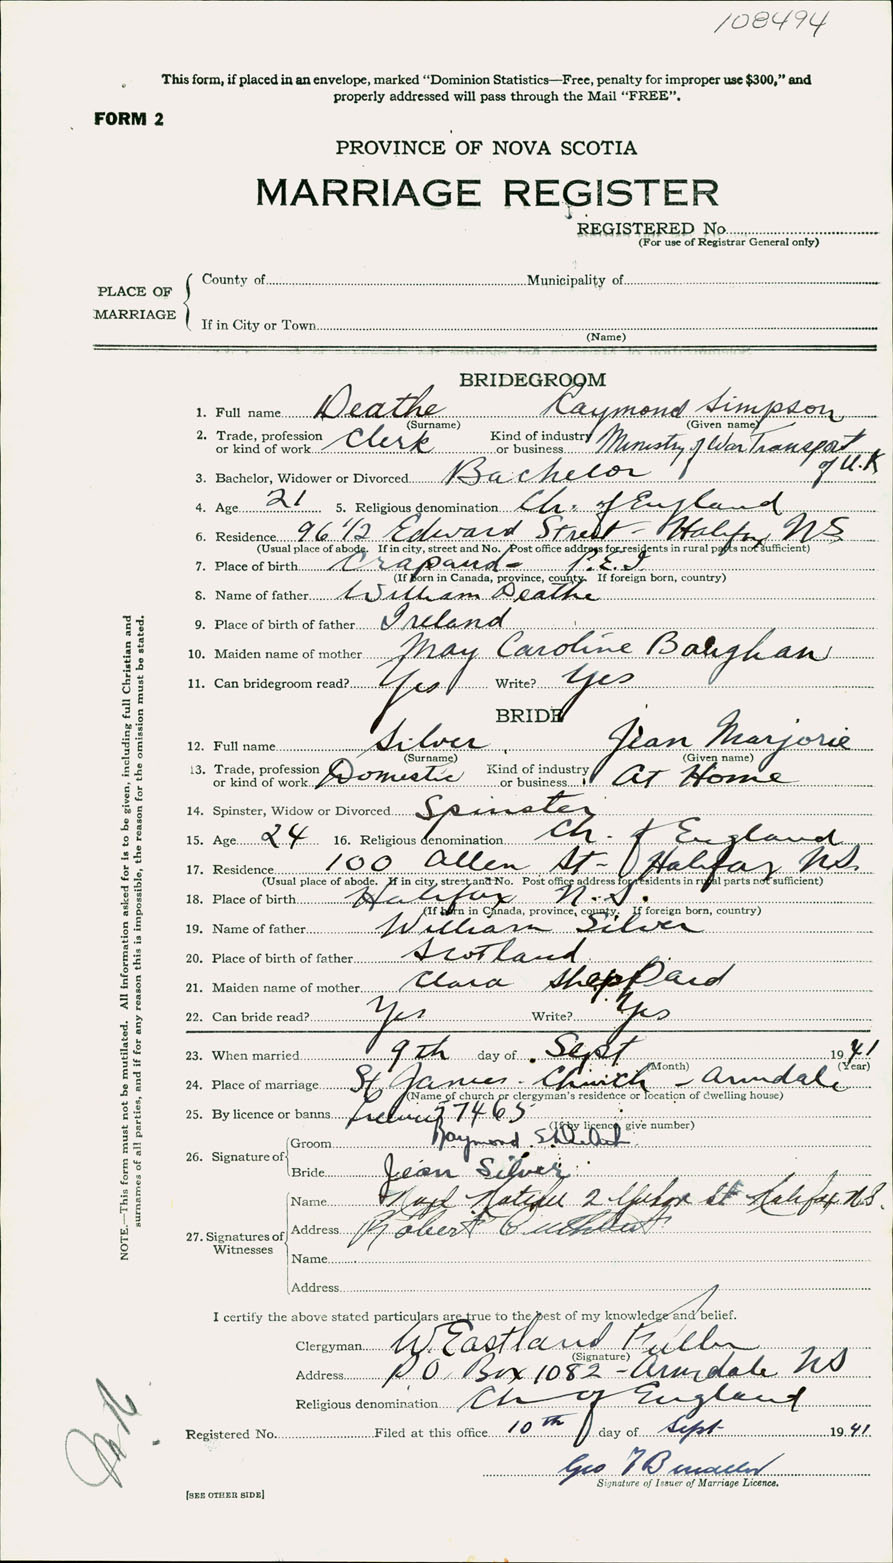 108494
This form, if placed in an envelope, marked “Dominion Statistics—Free, penalty for improper use $300,” and
properly addressed will pass through the Mail “FREE”.
FORM 2
PROVINCE OF NOVA SCOTIA
MARRIAGE REGISTER
REGISTERED No
(For use of Registrar General only)
PLACE OF MARRIAGE
County of Municipality of
If in City or Town
(Name)
BRIDEGROOM
1. Full name Deathe Raymond Simpson
(Surname) (Given name)
2. Trade, profession or kind of work Clerk Kind of industry or business Ministry of War Transport
of U.K
3. Bachelor, Widower or Divorced Bachelor
4. Age 21 5. Religious denomination Ch. of England
6. Residence 96 1/2 Edward Street - Halifax NS
(Usual place of abode. If in city, street and No. Post office address for residents in rural parts not sufficient)
7. Place of birth Crapaud - P.E.I
(If born in Canada, province, county. If foreign born, country)
8. Name of father William Deathe
9. Place of birth of father Ireland
10. Maiden name of mother May Caroline Baughan
11. Can bridegroom read? Yes Write? Yes
BRIDE
12. Full name Silver Jean Marjorie
(Surname) (Given name)
13. Trade, profession or kind of work Domestic Kind of industry or business At Home
14. Spinster, Widow or Divorced Spinster
15. Age 24 16. Religious denomination Ch. of England
17. Residence 100 Allen St - Halifax NS.
(Usual place of abode. If in city, street and No. Post office address for residents in rural parts not sufficient)
18. Place of birth Halifax N.S.
(If born in Canada, province, county. If foreign born, country)
19. Name of father William Silver
20. Place of birth of father Scotland
21. Maiden name of mother Clara Sheppard
22. Can bride read? Yes Write? Yes
23. When married 9th day of Sept 1941
(Month) (Year)
24. Place of marriage St James - Church - Armdale
(Name of church or clergyman's residence or location of dwelling house)
25. By licence or banns 27465
(If by licence, give number)
26. Signature of
Groom Raymond S
Bride Jean Silver
27. Signatures of Witnesses
Name 2 St Halifax N.S.
Address Robert
Name
Address
I certify the above stated particulars are true to the best of my knowledge and belief.
Clergyman W. Eastland Fuller
(Signature)
Address P O. Box 1082 - Armdale NS
Religious denomination Ch of England
Registered No. Filed at this office 10th day of Sept 1941.
Geo T
Signature of Issuer of Marriage Licence.
[SEE OTHER SIDE]
NOTE.—This form must not be mutilated. All information asked for is to be given, including full Christian and
surnames of all parties, and if for any reason this is impossible, the reason for the omission must be stated.